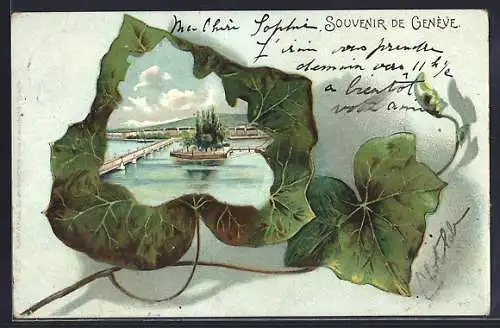 Ma Chère Sophie,
SOUVENIR DE GENÈVE.
J'irai vous prendre
demain vers 11 h ½
a bientôt
votre amie